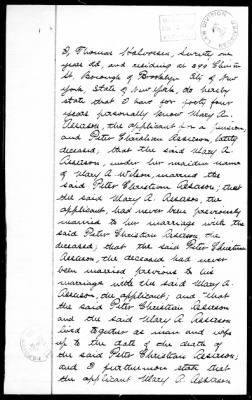 I, Thomas Halvorsen, seventy one
year old, and residing at 299
St, Borough of Brooklyn City of New
York, State of New York, do hereby
state that I have for forty four
years personally know Mary A.
Aseeson, the applicant in a pension,
and Peter Christian Aseeson lately
deceased; that the said Mary A.
Aseeson, under her maiden name
of Mary A Wilson, married the
said Peter Christian Aseeson; that
the said Mary A. Aseeson, the
applicant, had never been previously
married to her marriage with the
said Peter Christian Aseeson the
deceased; that the said Peter Christian
Aseeson, the deceased had never
been married previous to his
marriage with the said Mary A.
Aseeson, the applicant; and that
the said Peter Christian Aseeson
and the said Mary A Aseeson
lived together as man and wife
up to the date of the death of
the said Peter Christian Aseeson;
and I furthermore state that
the applicant Mary A. Aseeson